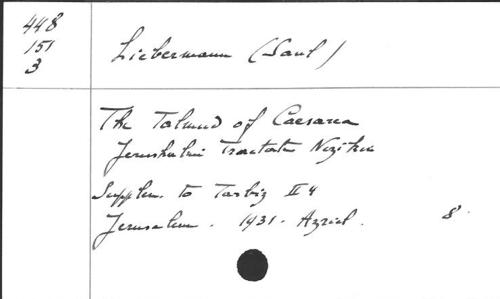 448
151
3
Liebermann (Saul)
The Talmud of Caesarea
Jerushalmi Tractate Nezikin
Supplem. to Tarbiz II 4
Jerusalem. 1931. Azriel. 8°